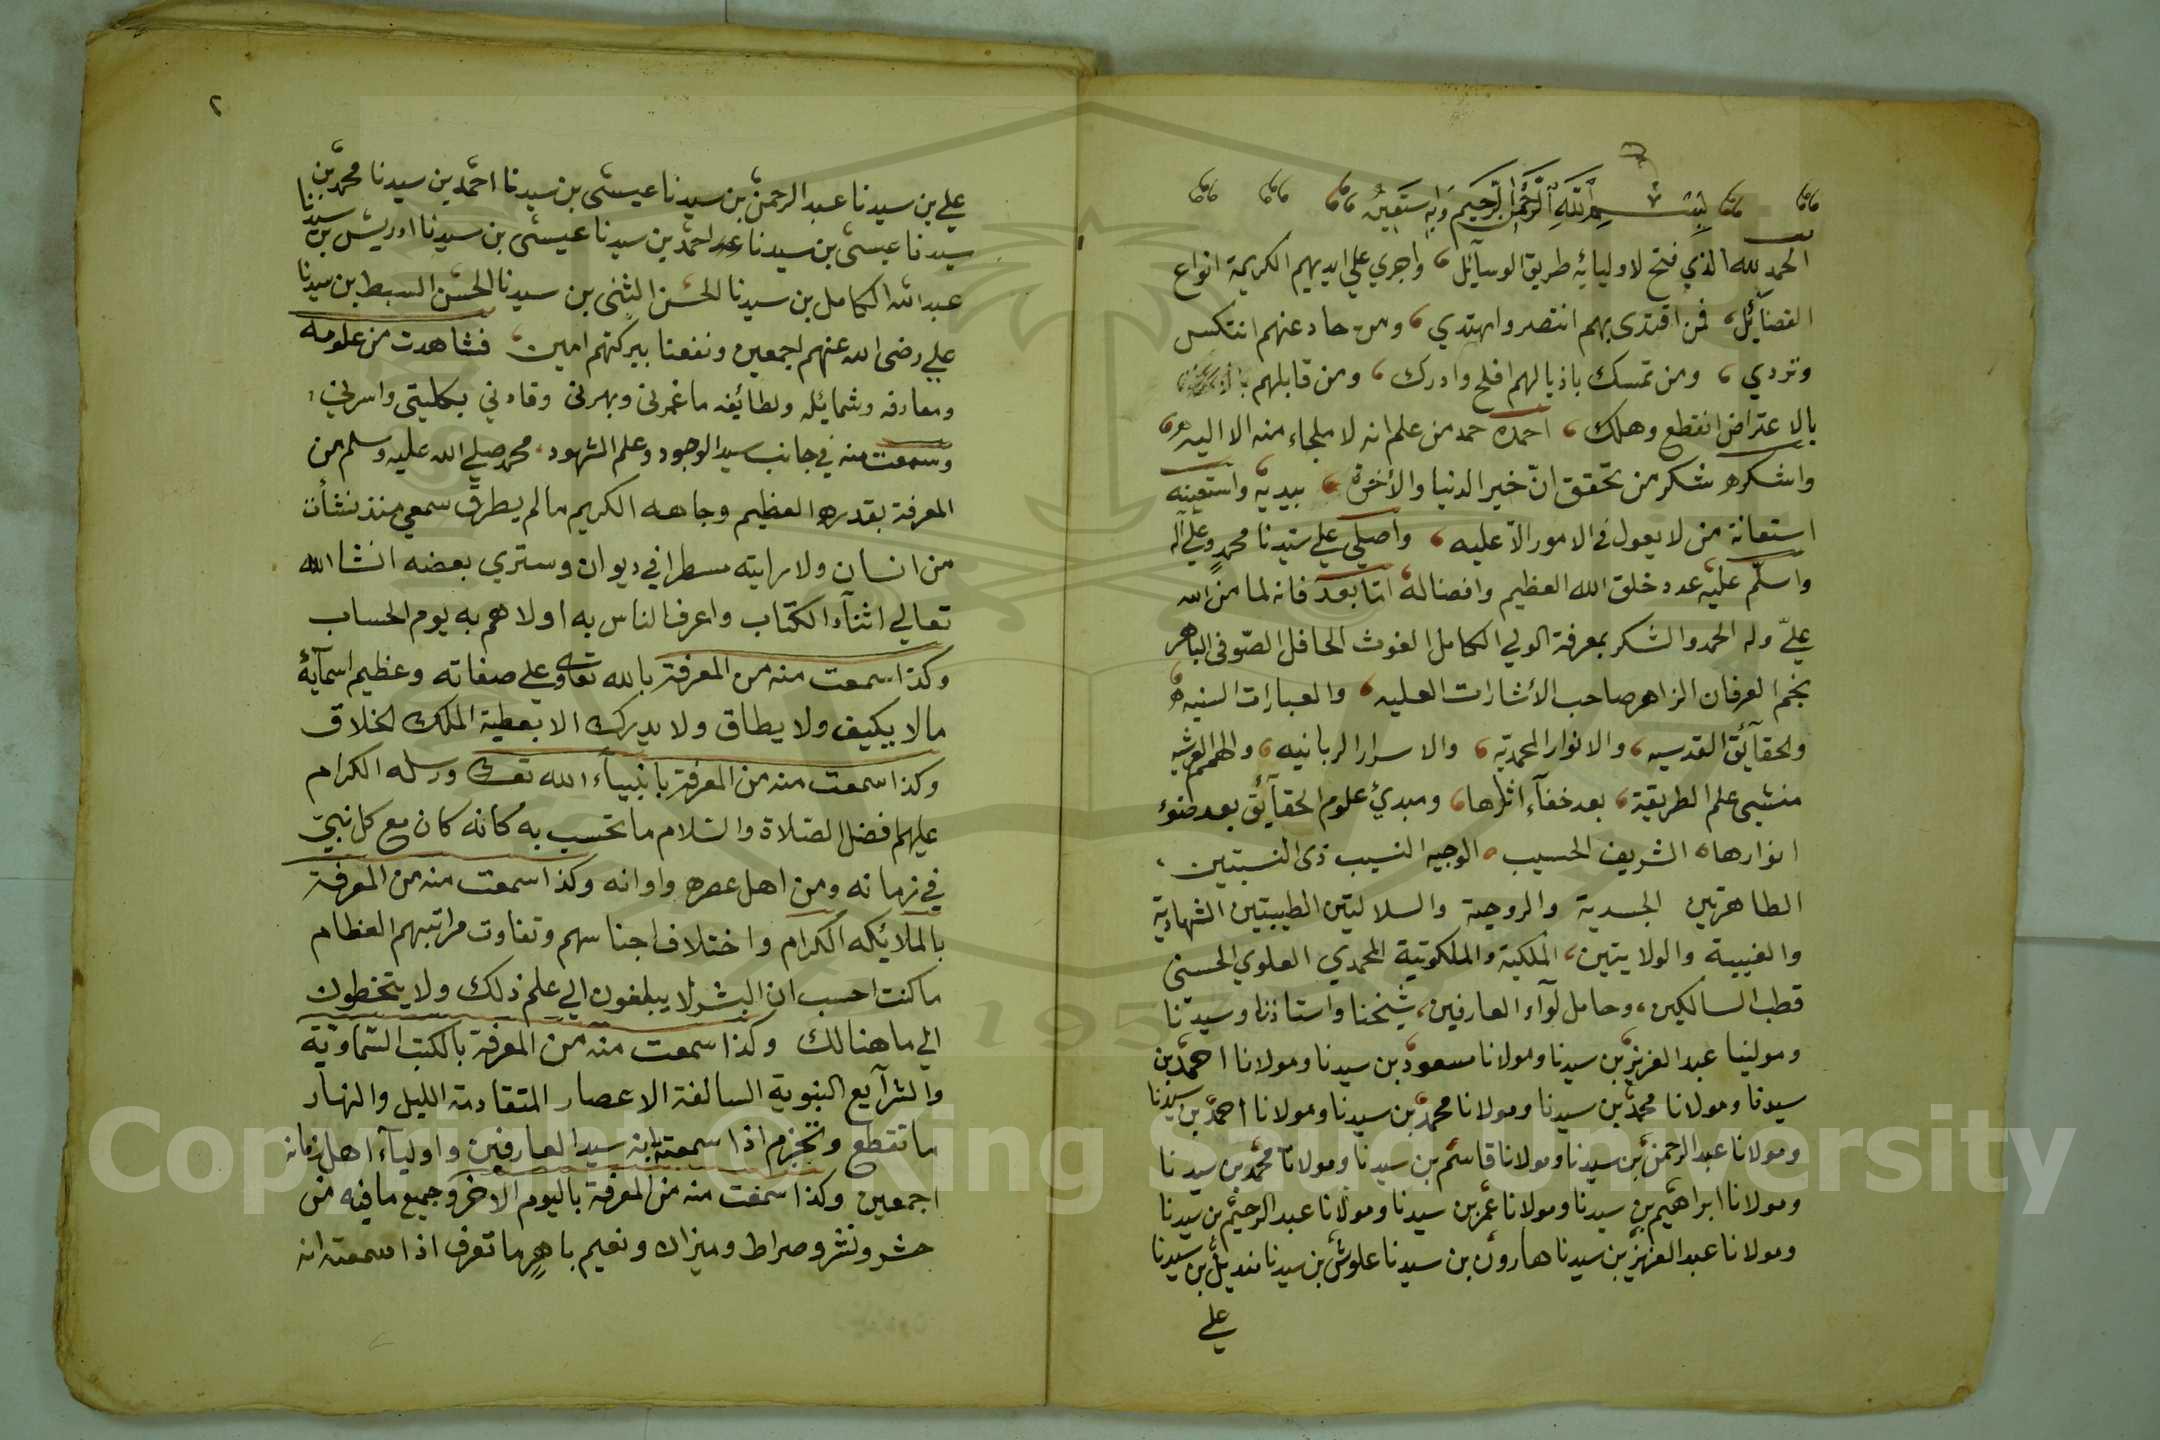 بسم الله الرحمن الرحيم وبه استعين
الحمد لله الذي فتح لاوليائه طريق الوسآئل، واجري علي ايديهم الكريمة انواع
الفضآئل، فمن اقتدى بهم انتصر واهتدي، ومن حاد عنهم انتكس
وتردي، ومن تمسك باذيالهم افلح وادرك، ومن قابلهم
بالاعتراض انقطع وهلك، احمده حمد من علم انه لا ملجاء منه الا اليه،
واشكره شكر من تحقق انّ خير الدنيا والأخرة، بيديه واستعينه
استعانة من لا يعول في الامور الّا عليه، واصلي علي سيدنا محمد وعلي آله
واسلّم عليه عدد خلق الله العظيم وافضاله امّا بعد فانه لما منّ الله
عليّ وله الحمد والشكر بمعرفة الولي الكامل الغوث الحافل الصّوفى الباهر
نجم العرفان الزاهر صاحب الأشارات العليه، والعبارات السنيه،
والحقآئق القدسيه، والانوار المحمدية، والاسرار الربانيه، والهمم العرشيه
منشىى علم الطريقة، بعد خفآء اثارها، ومبدئ علوم الحقآئق بعد ضوء
انوارها، الشريف الحسيب، الوجيه النسيب ذى النسبتين،
الطاهرتين الجسدية والروحية والسلاليتين الطيبتين الشهادية
والغيبية والولايتين، الملكية والملكوتية المحمدي العلوي الحسنى
قطب السالكين، وحامل لوآء العارفين، شيخنا واستاذنا وسيدنا
ومولينا عبد العزيز بن سيدنا ومولانا مسعود بن سيدنا ومولانا احمد بن
سيدنا ومولانا محمد بن سيدنا ومولانا محمد بن سيدنا ومولانا احمد بن سيدنا
ومولانا عبد الرحمن بن سيدنا ومولانا قاسم بن سيدنا ومولانا محمد بن سيدنا
ومولانا ابراهيم بن سيدنا ومولانا عمر بن سيدنا ومولانا عبد الرحيم بن سيدنا
ومولانا عبد العزيز بن سيدنا هارون بن سيدنا علوش بن سيدنا منديل بن سيدنا
علي
٢
علي بن سيدنا عبد الرحمن بن سيدنا عيسى بن سيدنا احمد بن سيدنا محمد بن
سيدنا عيسى بن سيدنا احمد بن سيدنا عيسى بن سيدنا ادريس بن سيدنا
عبد الله الكامل بن سيدنا الحسن المثنى بن سيدنا الحسن السبط بن سيدنا
علي رضى الله عنهم اجمعين ونفعنا ببركتهم امين، فشاهدت من علومه
ومعارفه وشمائله ولطائفه ما غمرنى وبهرنى وقادني بكليتى واسرني،
وسمعت منه في جانب سيد الوجود وعلم الشهود، محمد صلي الله عليه وسلم من
المعرفة بقدره العظيم وجاهه الكريم ما لم يطرق سمعي منذ نشأت
من انسان ولا رايته مسطرا في ديوان وستري بعضه انشا الله
تعالي اثنآء الكتاب واعرف الناس به اولاهم به يوم الحساب
وكذا سمعت منه من المعرفة بالله تعالى وعلي صفاته وعظيم اسمآيه
ما لا يكيف ولا يطاق ولا يدرك الا بعطية الملك الخلاق
وكذا سمعت منه من المعرفة بانبيآء الله تعالى ورسله الكرام
عليهم افضل الصلاة والسّلام ما تحسب به كانه كان مع كل نبيّ
في زمانه ومن اهل عصره واوانه وكذا سمعت منه من المعرفة
بالملائكه الكرام واختلاف اجناسهم وتفاوت مراتبهم العظام
ما كنت احسب ان البشر لا يبلغون الي علم ذلك ولا يتخطون
الي ما هنالك وكذا سمعت منه من المعرفة بالكتب السّماوية
والشرآيع النبوية السالفة الاعصار المتقادمة الليل والنهار
ما تقطع وتجزم اذا سمعته انه سيد العارفين واوليآء اهل زمانه
اجمعين وكذا سمعت منه من المعرفة باليوم الاخر وجميع ما فيه من
حشر ونشر وصراط وميزان ونعيم باهر ما تعرف اذا سمعته انه
Copyright © King Saud University